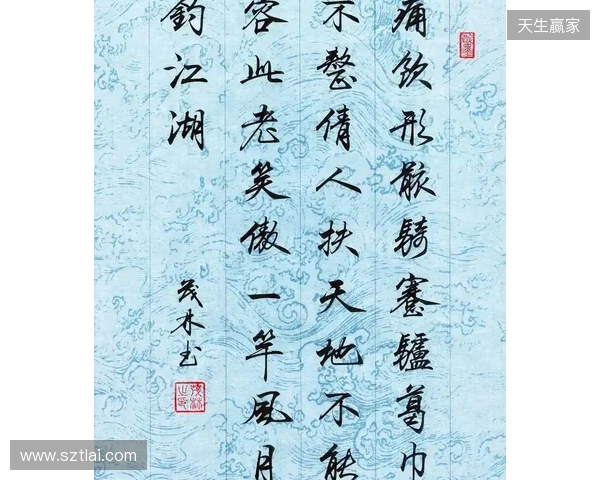 天生赢家
痛飲形骸騎蹇驢葛巾
不整倩人扶天地不能
容此老笑傲一竿風月
釣江湖
茂林书
www.sztlai.com